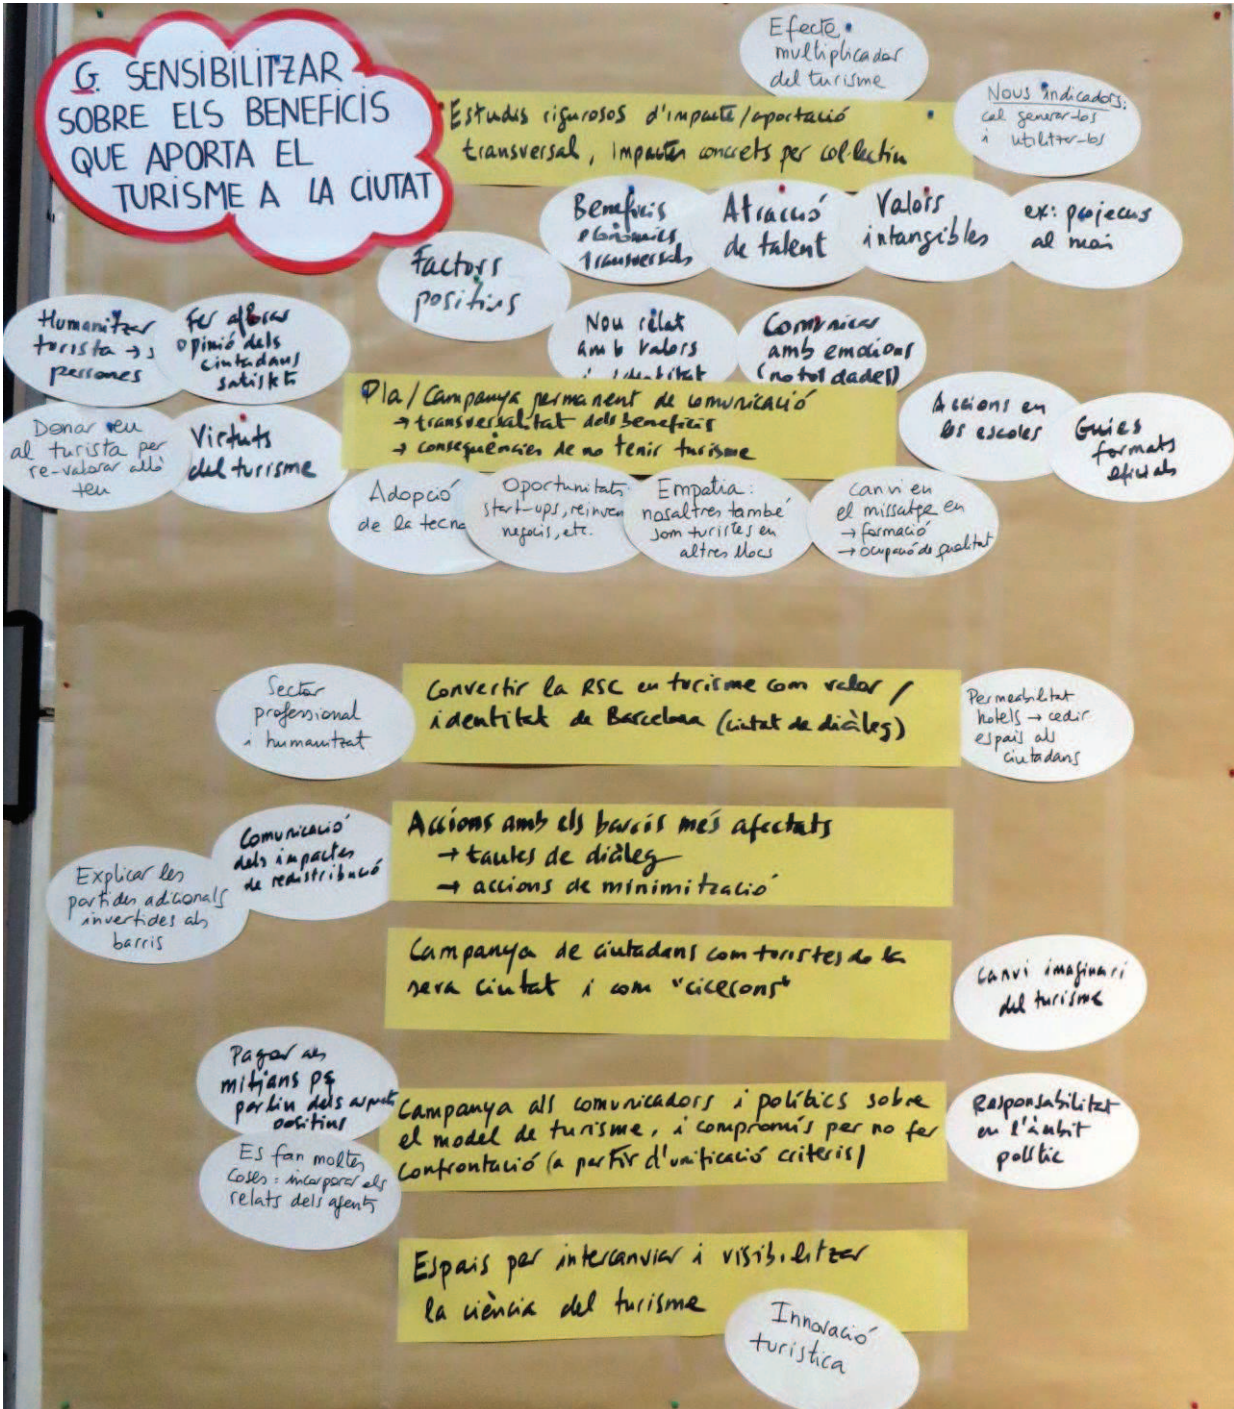 G. SENSIBILITZAR
SOBRE ELS BENEFICIS
QUE APORTA EL
TURISME A LA CIUTAT
Efecte
multiplicador
del turisme
Nous indicadors:
cal generar-los
i utilitzar-los
Estudis rigurosos d'impacte/aportació
transversal, impactes concrets per col·lectiu
Beneficis
econòmics
transversals
Atracció
de talent
Valors
intangibles
ex: projectes
al món
Factors
positius
Nou relat
amb valors
i identitat
Comunicar
amb emocions
(no tot dades)
Humanitzar
turista →
persones
Fer aflorar
opinió dels
ciutadans
satisfets
Pla/Campanya permanent de comunicació
→ transversalitat dels beneficis
→ conseqüències de no tenir turisme
Accions en
les escoles
Guies
formats
oficials
Donar veu
al turista per
re-valorar allò
teu
Virtuts
del turisme
Adopció
de la tecno
Oportunitats
start-ups, reinven
negocis, etc.
Empatia:
nosaltres també
som turistes en
altres llocs
Canvi en
el missatge en
→ formació
→ ocupació de qualitat
Sector
professional
i humanitzat
Convertir la RSC en turisme com valor /
identitat de Barcelona (ciutat de diàleg)
Permeabilitat
hotels → cedir
espais als
ciutadans
Comunicació
dels impactes
de redistribució
Explicar les
partides adicionals
invertides als
barris
Accions amb els barris més afectats
→ taules de diàleg
→ accions de minimització
Campanya de ciutadans com turistes de la
seva ciutat i com "cicerons"
Canvi imaginari
del turisme
Pagar als
mitjans pq
parlin dels aspectes
positius
Es fan moltes
coses: incorporar els
relats dels agents
Campanya als comunicadors i polítics sobre
el model de turisme, i compromís per no fer
confrontació (a partir d'unificació criteris)
Responsabilitat
en l'àmbit
polític
Espais per intercanviar i visibilitzar
la ciència del turisme
Innovació
turística